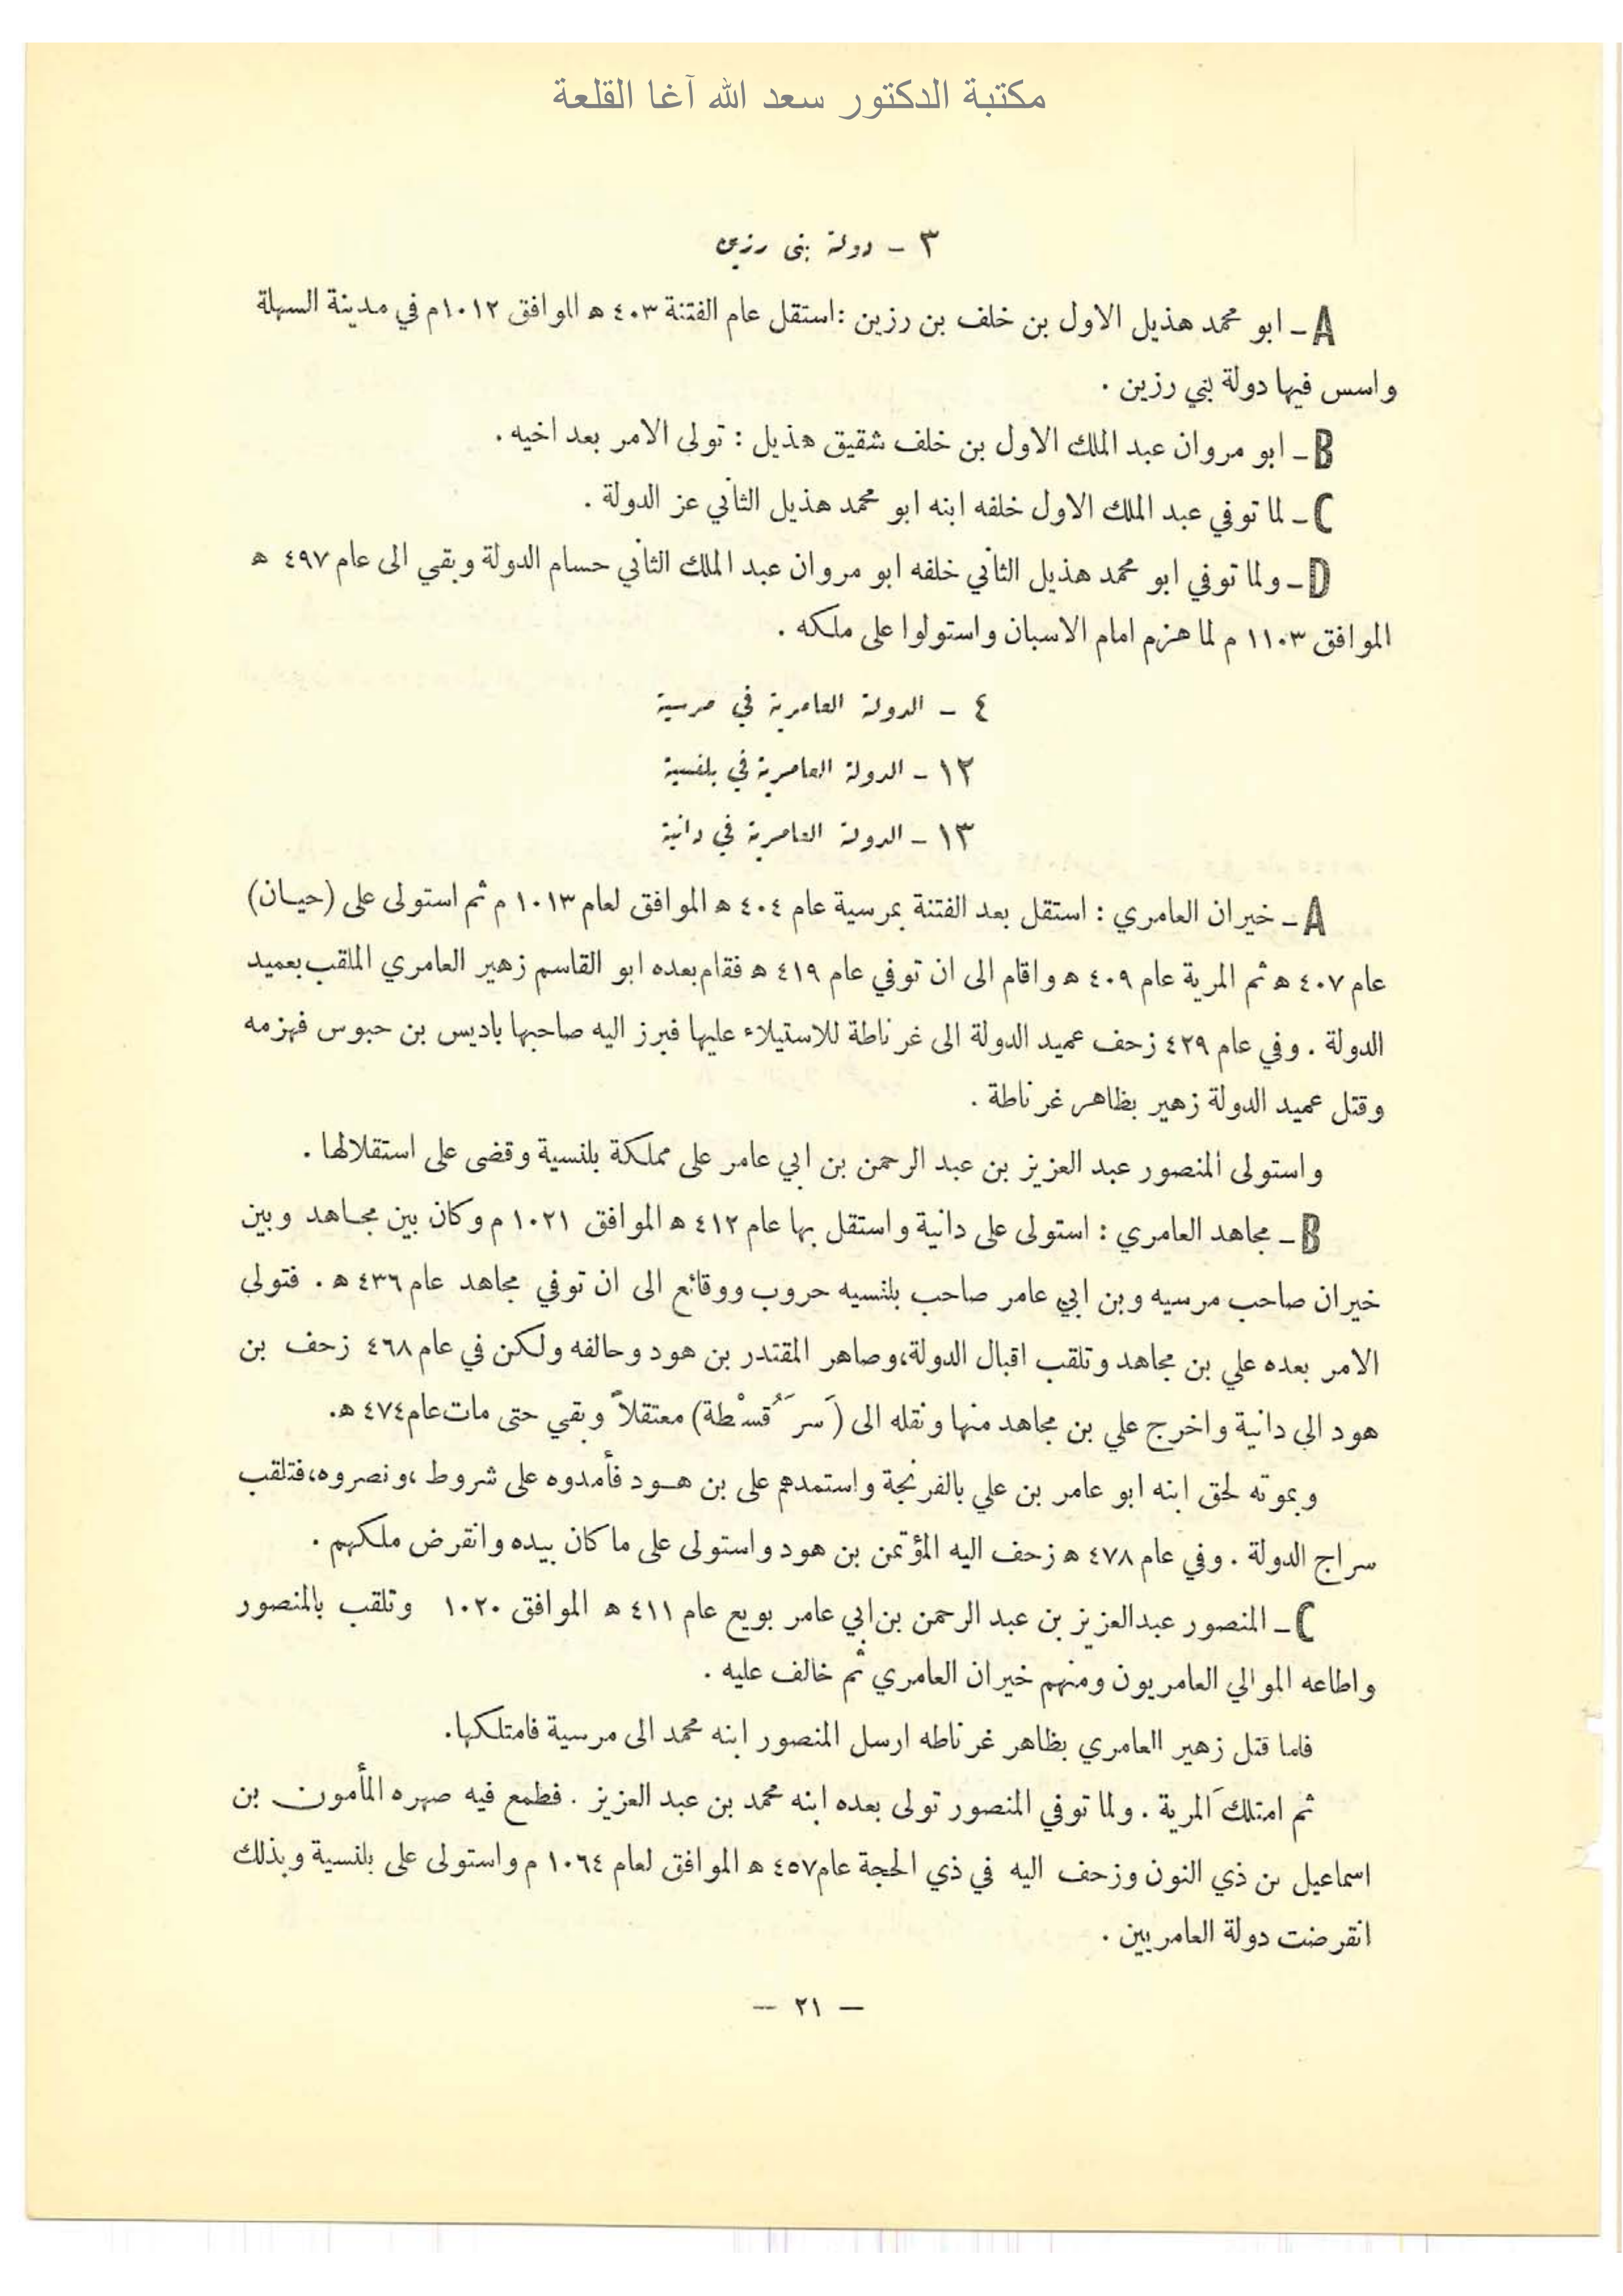 مكتبة الدكتور سعد الله آغا القلعة
٣ - دولة بني رزين
A - ابو محمد هذيل الاول بن خلف بن رزين : استقل عام الفتنة ٤٠٣ ه الموافق ١٠١٢م في مدينة السهلة
واسس فيها دولة بني رزين .
B - ابو مروان عبد الملك الاول بن خلف شقيق هذيل : تولى الامر بعد اخيه .
C - لما توفي عبد الملك الاول خلفه ابنه ابو محمد هذيل الثاني عز الدولة .
D - ولما توفي ابو محمد هذيل الثاني خلفه ابو مروان عبد الملك الثاني حسام الدولة وبقي الى عام ٤٩٧ ه
الموافق ١١٠٣ م لما هزم امام الاسبان واستولوا على ملكه .
٤ - الدولة العامرية في مرسية
١٢ - الدولة العامرية في بلنسية
١٣ - الدولة العامرية في دانية
A - خيران العامري : استقل بعد الفتنة بمرسية عام ٤٠٤ ه الموافق لعام ١٠١٣ م ثم استولى على (حيان)
عام ٤٠٧ ه ثم المرية عام ٤٠٩ ه واقام الى ان توفي عام ٤١٩ ه فقام بعده ابو القاسم زهير العامري الملقب بعميد
الدولة . وفي عام ٤٢٩ زحف عميد الدولة الى غرناطة للاستيلاء عليها فبرز اليه صاحبها باديس بن حبوس فهزمه
وقتل عميد الدولة زهير بظاهر غرناطة .
واستولى المنصور عبد العزيز بن عبد الرحمن بن ابي عامر على مملكة بلنسية وقضى على استقلالها .
B - مجاهد العامري : استولى على دانية واستقل بها عام ٤١٢ ه الموافق ١٠٢١ م وكان بين مجاهد وبين
خيران صاحب مرسيه وبن ابي عامر صاحب بلنسيه حروب ووقائع الى ان توفي مجاهد عام ٤٣٦ ه . فتولى
الامر بعده علي بن مجاهد وتلقب اقبال الدولة،وصاهر المقتدر بن هود وحالفه ولكن في عام ٤٦٨ زحف بن
هود الى دانية واخرج علي بن مجاهد منها ونقله الى (سَرَقُسْطة) معتقلاً وبقي حتى مات عام ٤٧٤ ه.
وبموته لحق ابنه ابو عامر بن علي بالفرنجة واستمدهم على بن هود فأمدوه على شروط ،ونصروه،فتلقب
سراج الدولة . وفي عام ٤٧٨ ه زحف اليه المؤتمن بن هود واستولى على ما كان بيده وانقرض ملكهم .
C - المنصور عبدالعزيز بن عبد الرحمن بن ابي عامر بويع عام ٤١١ ه الموافق ١٠٢٠ وتلقب بالمنصور
واطاعه الموالي العامريون ومنهم خيران العامري ثم خالف عليه .
فلما قتل زهير العامري بظاهر غرناطه ارسل المنصور ابنه محمد الى مرسية فامتلكها.
ثم امتلك المرية . ولما توفي المنصور تولى بعده ابنه محمد بن عبد العزيز . فطمع فيه صهره المأمون بن
اسماعيل بن ذي النون وزحف اليه في ذي الحجة عام ٤٥٧ ه الموافق لعام ١٠٦٤ م واستولى على بلنسية وبذلك
انقرضت دولة العامريين .
— ٢١ —